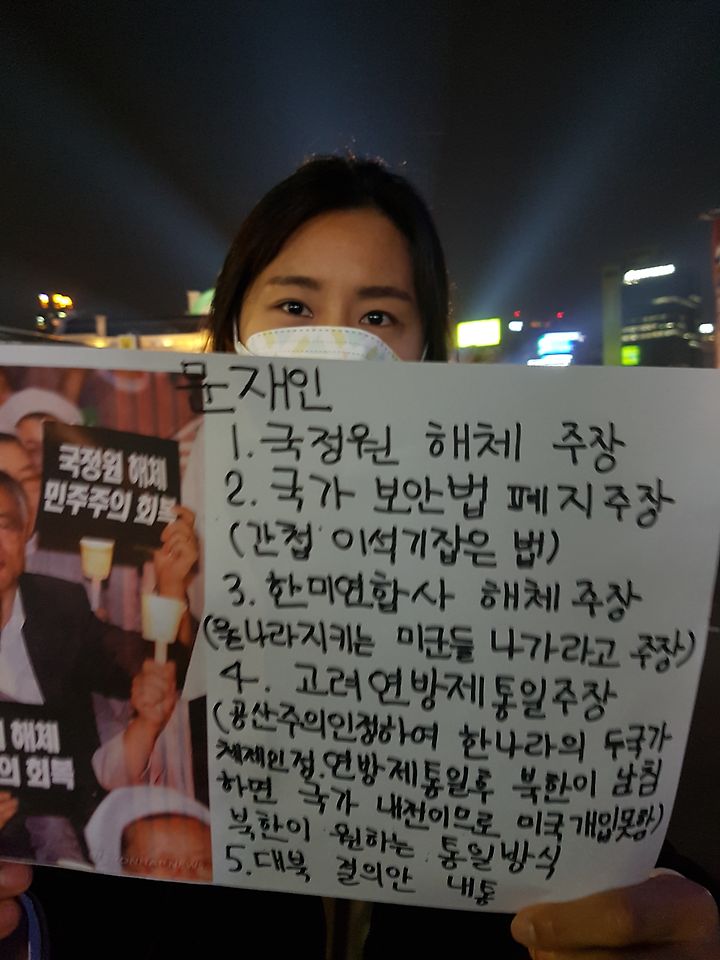 국정원 해체
민주주의 회복
해체
의 회복
YONHAPNEWS
문재인
1. 국정원 해체 주장
2. 국가 보안법 폐지주장
(간첩 이석기잡은 법)
3. 한미연합사 해체 주장
(우리나라지키는 미군들 나가라고 주장)
4. 고려연방제통일주장
(공산주의인정하여 한나라의 두국가
체제인정. 연방제통일후 북한이 남침
하면 국가 내전이므로 미국개입못함)
북한이 원하는 통일방식
5. 대북 결의안 내통